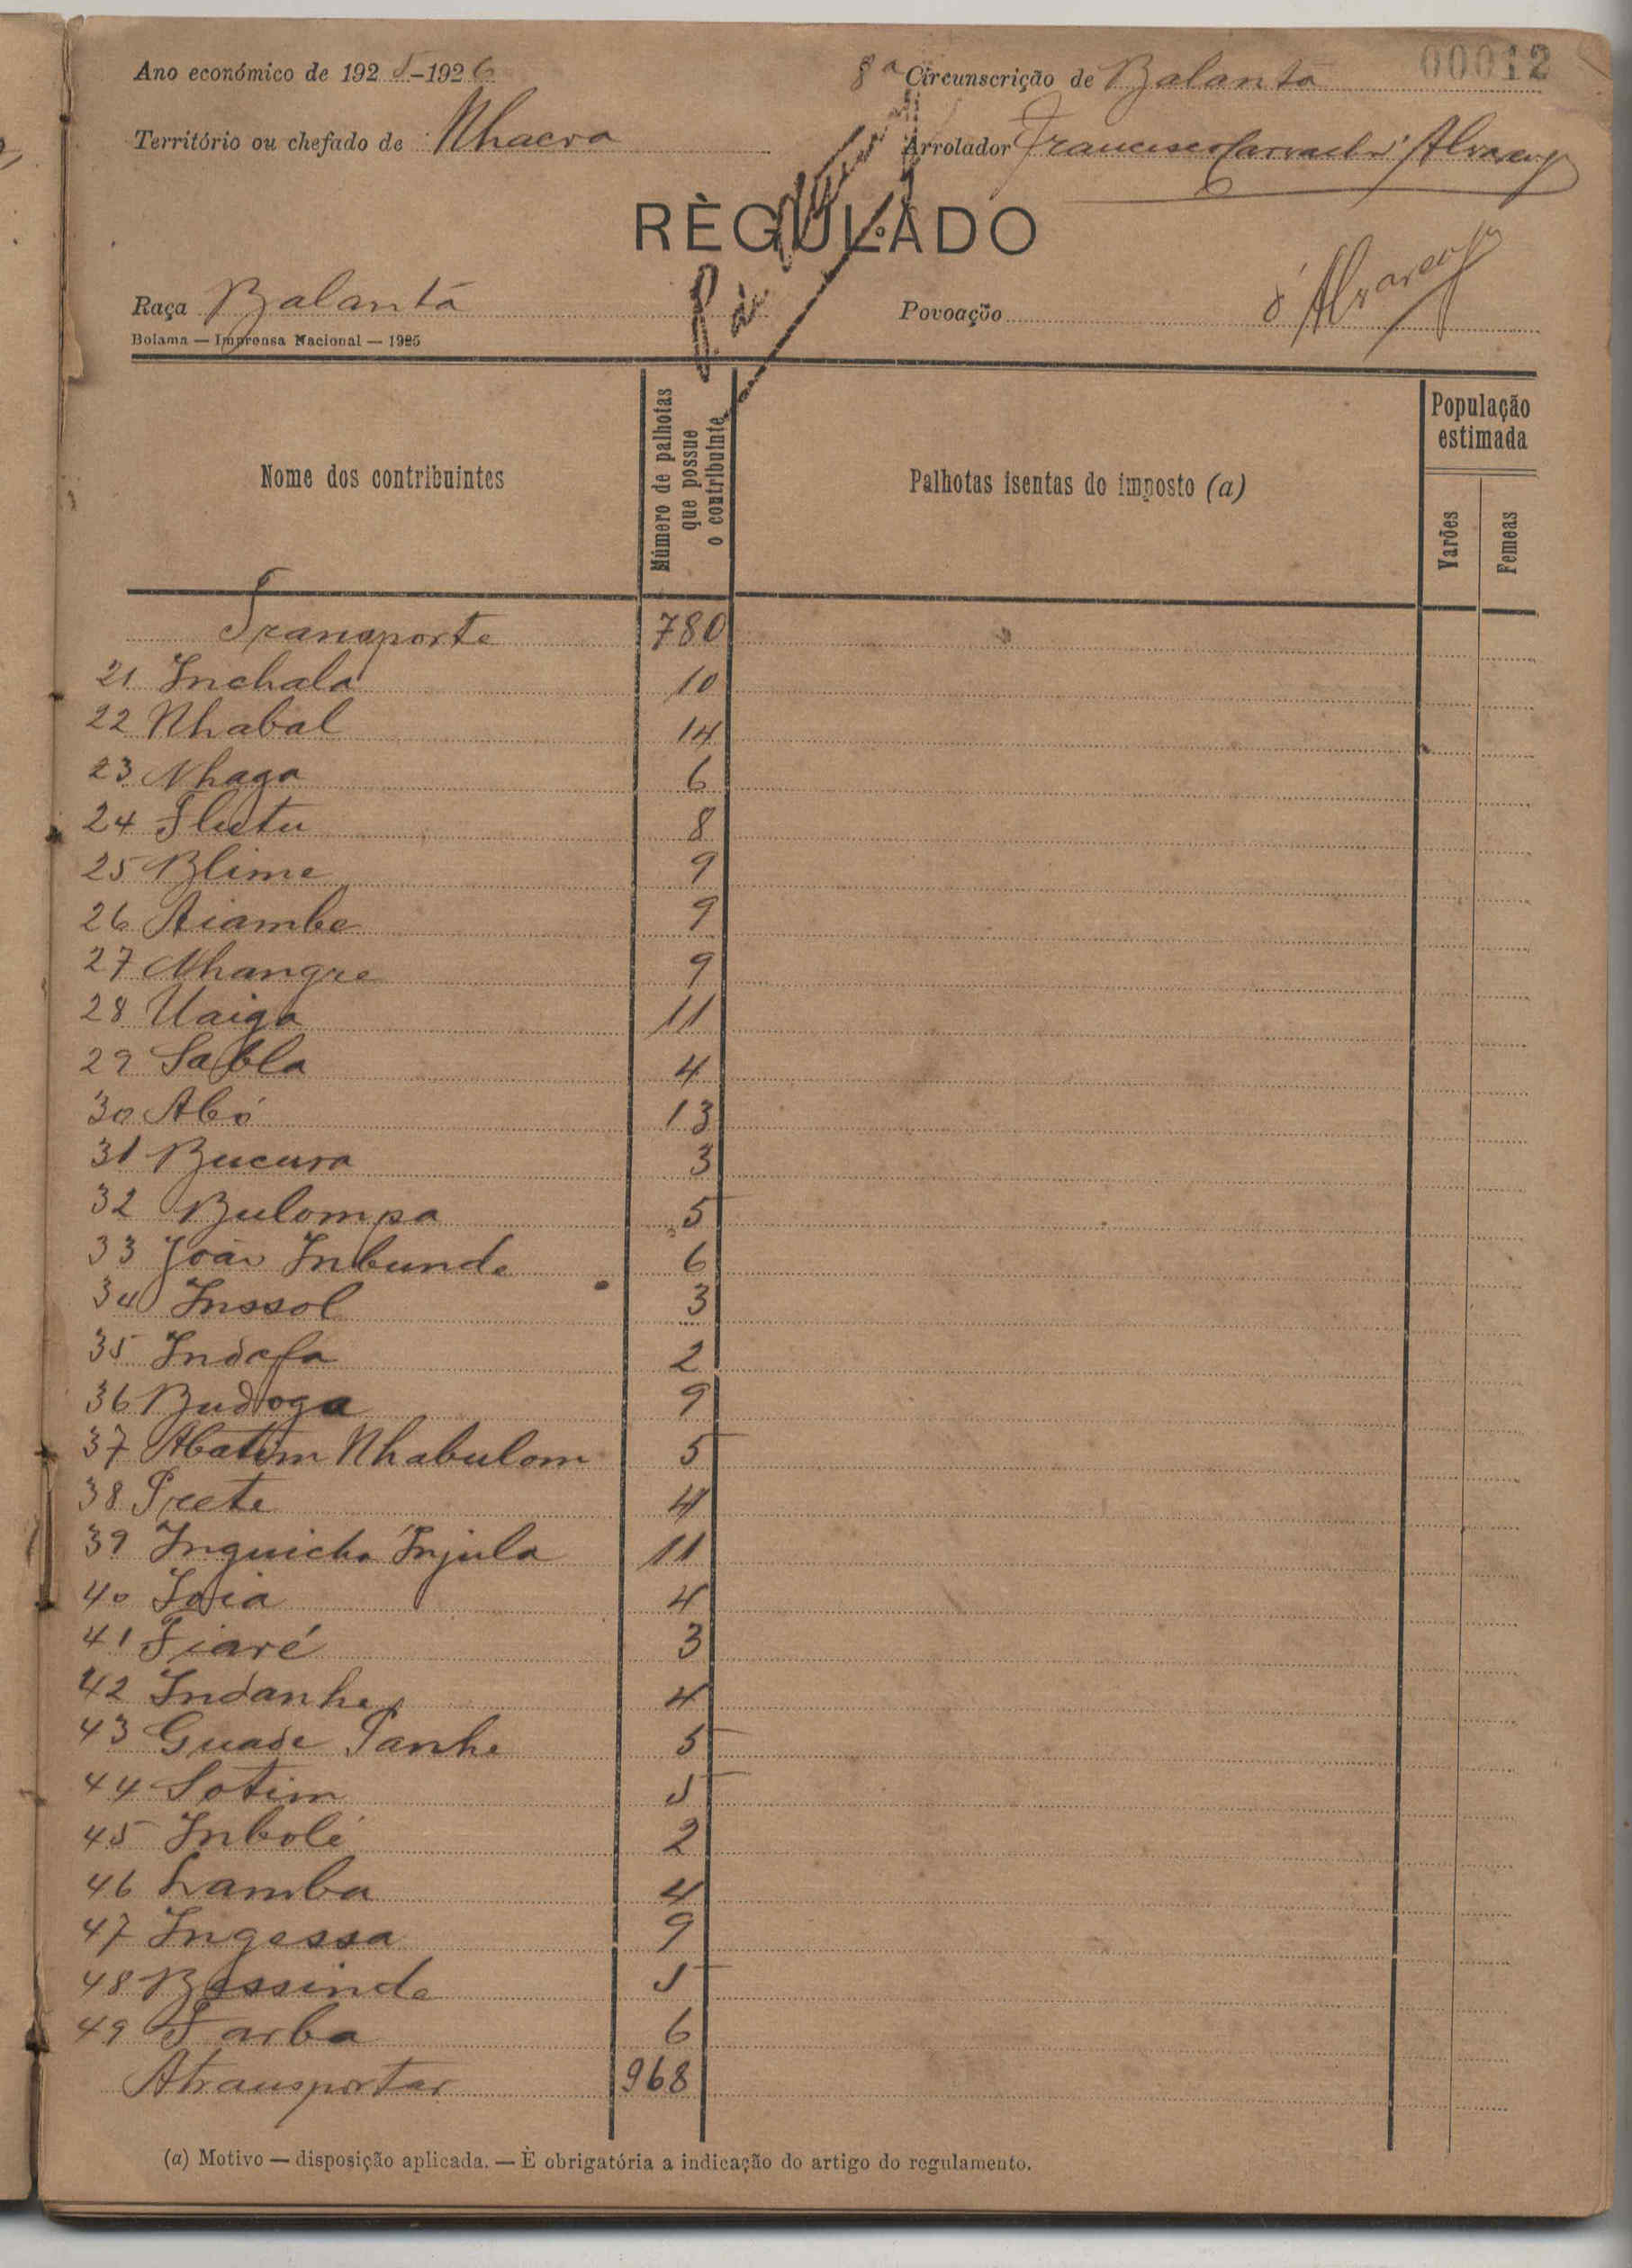 00012
Ano económico de 1925-1926 8ª Circunscrição de Balanta
Território ou chefado de Nhacra Arrolador Francisco Carvalho d'Alvarenga
RÈGULADO
Raça Balanta Povoação d'Alvarenga
Bolama — Imprensa Nacional — 1925
Nome dos contribuintes
Número de palhotas que possue o contribuinte
Palhotas isentas do imposto (a)
População estimada
Varões
Femeas
Transporte 780
21 Inchala 10
22 Nhabal 14
23 Nhaga 6
24 Flutu 8
25 Blime 9
26 Aiambe 9
27 Nhangre 9
28 Uaiga 11
29 Sabla 4
30 Abó 13
31 Bucura 3
32 Bulompa 5
33 João Inbunde 6
34 Inssol 3
35 Indafa 2
36 Budoga 9
37 Abatim Nhabulom 5
38 Prete 4
39 Inguicha Injula 11
40 Ioia 4
41 Fiaré 3
42 Indanhe 4
43 Guade Panhe 5
44 Sotim 5
45 Inbolé 2
46 Lamba 4
47 Ingessa 9
48 Bessinde 5
49 Tarba 6
A transportar 968
(a) Motivo — disposição aplicada. — È obrigatória a indicação do artigo do regulamento.